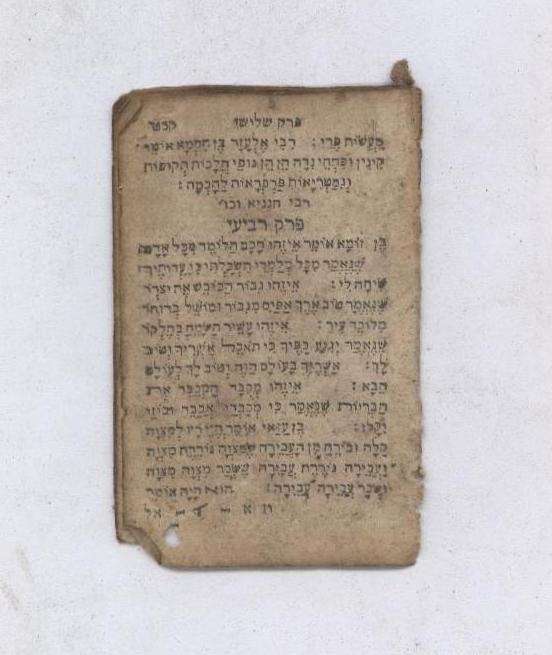 פרק שלישי קכטר
מַעֲשׂוֹת פְּרִי : רַבִּי אֶלְעָזָר בֶּן חִסְמָא אוֹמֵר
קִינִּין וּפִתְחֵי נִדָּה הֵן הֵן גּוּפֵי הֲלָכוֹת תְּקוּפוֹת
וְגִמַטְרִיָּאוֹת פַּרְפְּרָאוֹת לַחָכְמָה :
רבי חנניא וכו'
פרק רביעי
בֶּן זוֹמָא אוֹמֵר אֵיזֶהוּ חָכָם הַלּוֹמֵד מִכָּל אָדָם
שֶׁנֶּאֱמַר מִכָּל מְלַמְּדַי הִשְׂכַּלְתִּי כִּי עֵדְוֹתֶיךָ
שִׂיחָה לִי : אֵיזֶהוּ גִבּוֹר הַכּוֹבֵשׁ אֶת יִצְרוֹ
שֶׁנֶּאֱמַר טוֹב אֶרֶךְ אַפַּיִם מִגִּבּוֹר וּמוֹשֵׁל בְּרוּחוֹ
מִלּוֹכֵד עִיר : אֵיזֶהוּ עָשִׁיר הַשָּׂמֵחַ בְּחֶלְקוֹ
שֶׁנֶּאֱמַר יְגִיעַ כַּפֶּיךָ כִּי תֹאכֵל אַשְׁרֶיךָ וְטוֹב
לָךְ : אַשְׁרֶיךָ בָּעוֹלָם הַזֶּה וְטוֹב לָךְ לָעוֹלָם
הַבָּא : אֵיזֶהוּ מְכֻבָּד הַמְכַבֵּד אֶת
הַבְּרִיּוֹת שֶׁנֶּאֱמַר כִּי מְכַבְּדַי אֲכַבֵּד וּבוֹזַי
יֵקָלּוּ : בֶּן עֲזַּאי אוֹמֵר הֱוֵי רָץ לְמִצְוָה
קַלָּה וּבוֹרֵחַ מִן הָעֲבֵירָה שֶׁמִּצְוָה גּוֹרֶרֶת מִצְוָה
וַעֲבֵירָה גּוֹרֶרֶת עֲבֵירָה שֶׁשְּׂכַר מִצְוָה מִצְוָה
וּשְׂכַר עֲבֵירָה עֲבֵירָה : הוּא הָיָה אוֹמֵר
אל